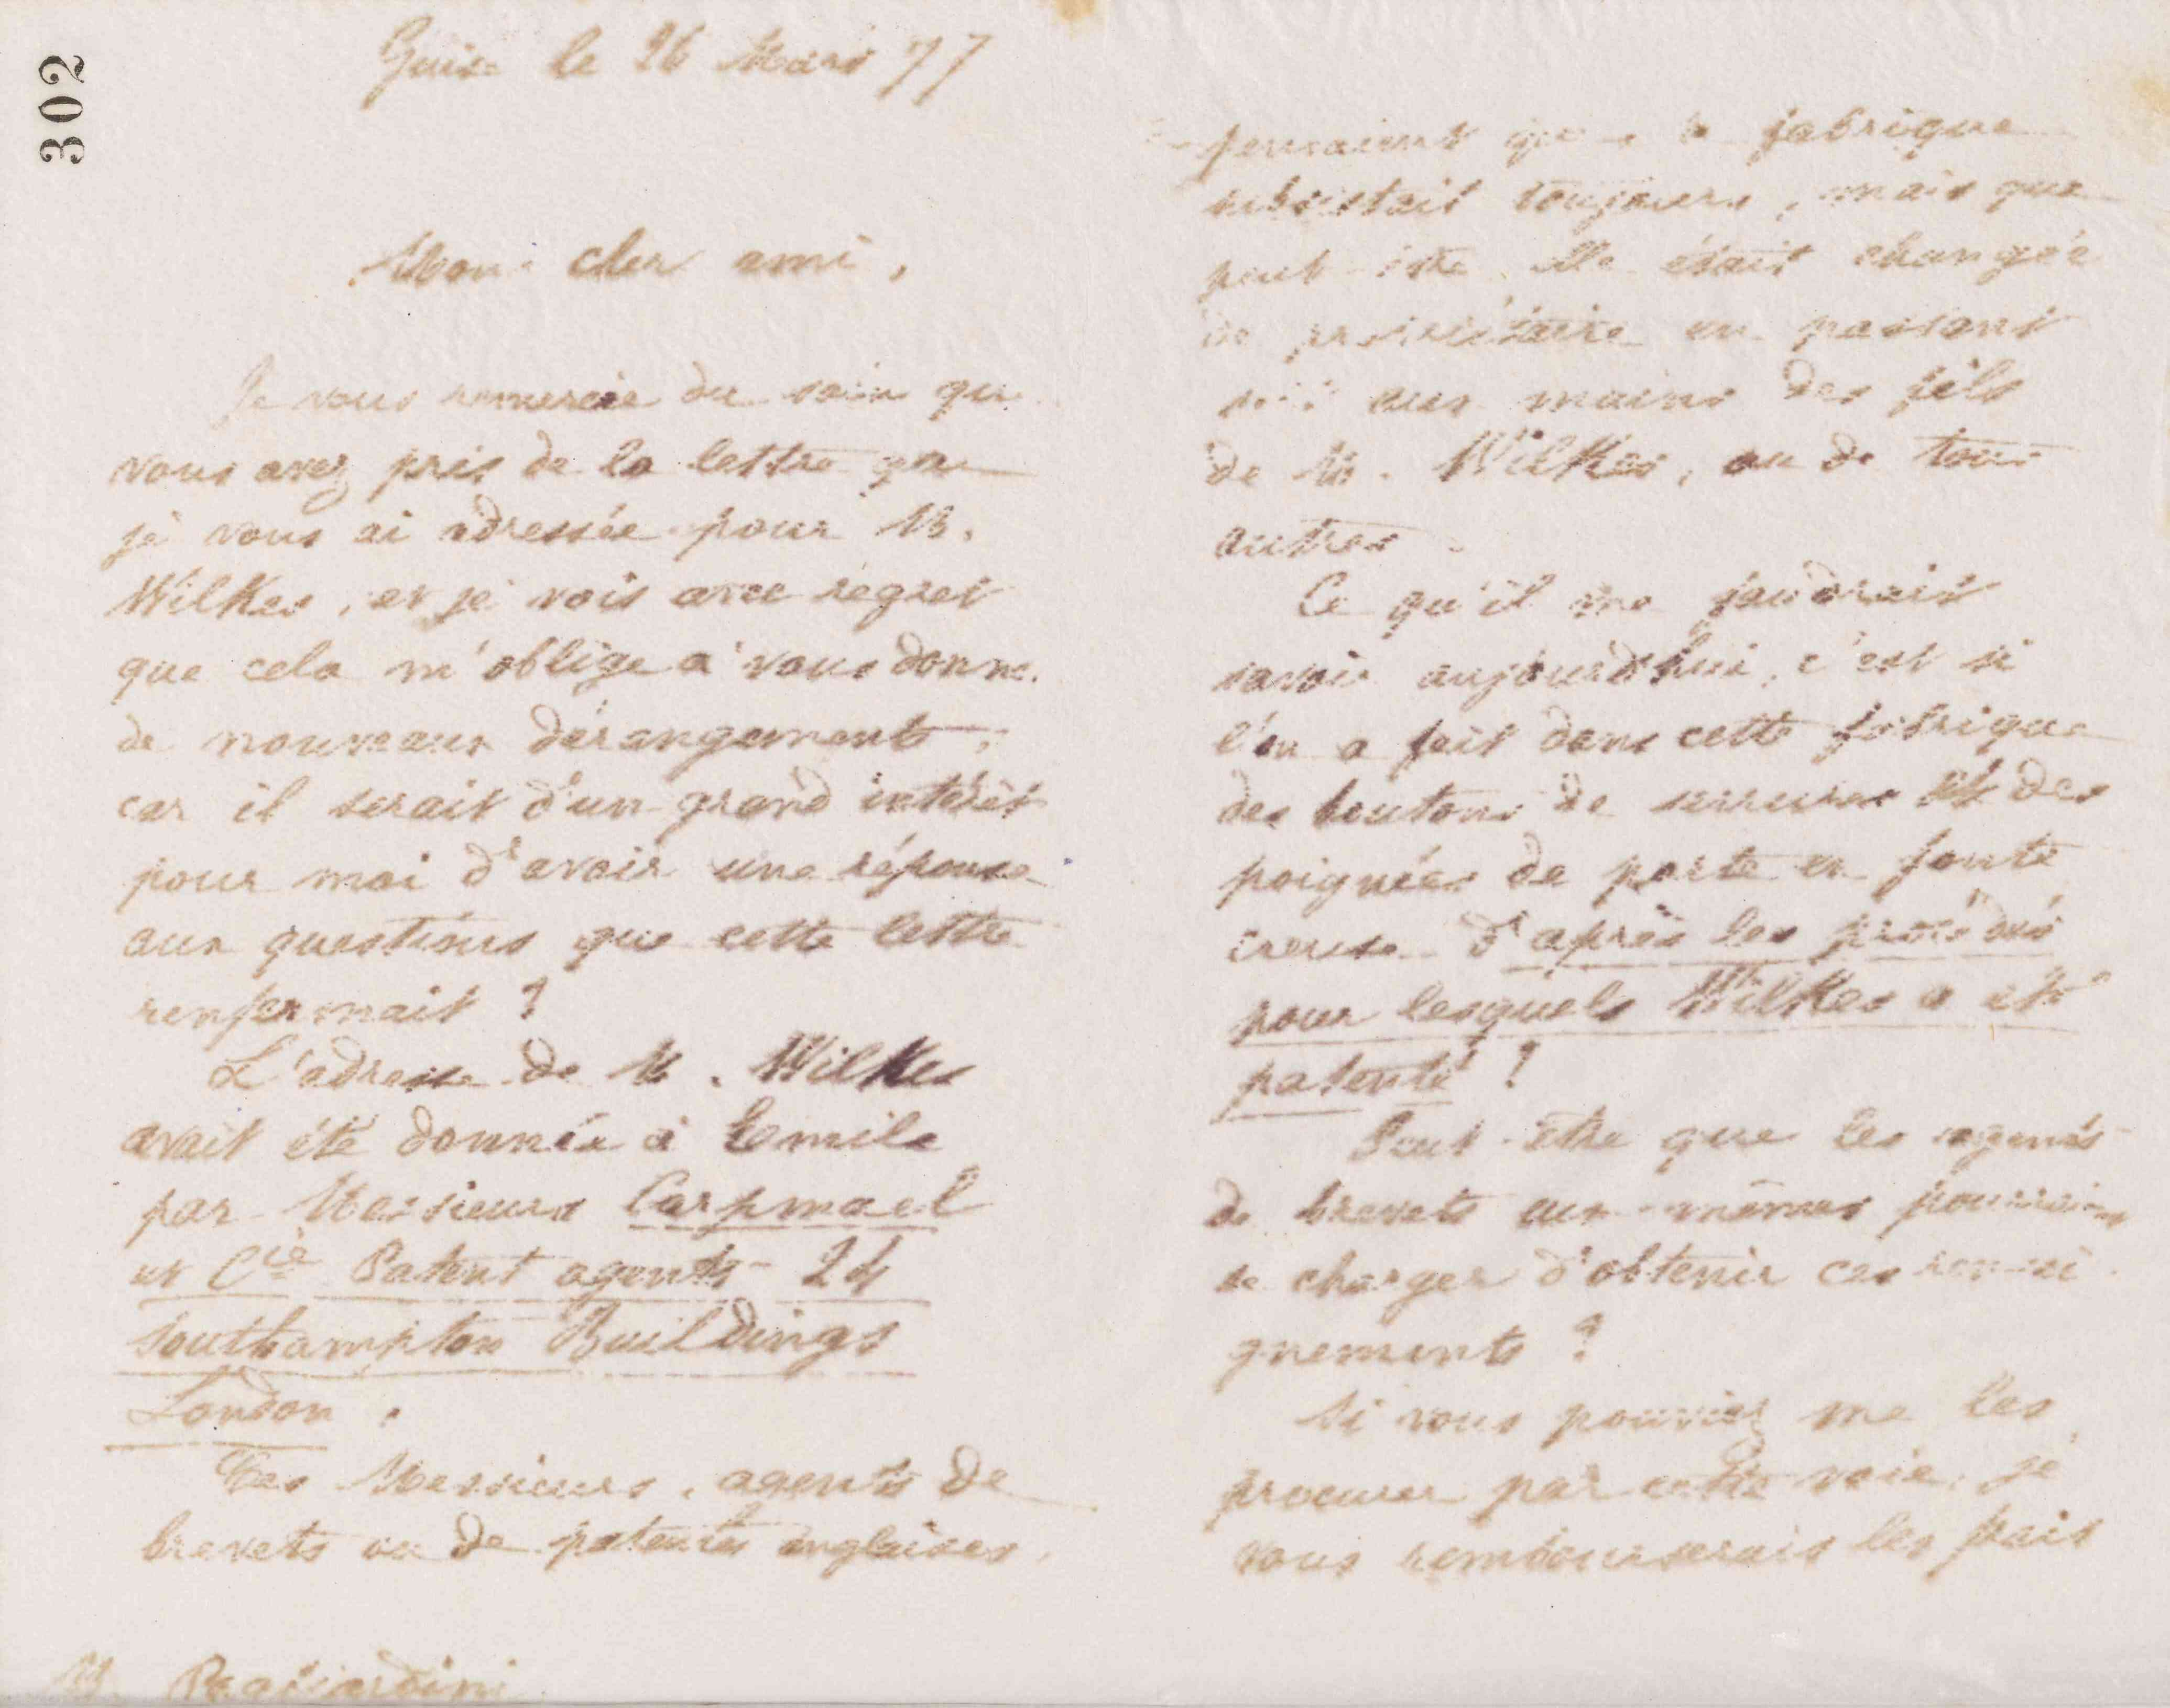 302
Guise le 26 Mars 77
Mon cher ami,
Je vous remercie du soin que
vous avez pris de la lettre que
je vous ai adressée pour M.
Wilkes, et je vois avec regret
que cela m'oblige à vous donner
de nouveaux dérangements,
car il serait d'un grand intérêt
pour moi d'avoir une réponse
aux questions que cette lettre
renfermait ?
L'adresse de M. Wilkes
avait été donnée à Emile
par Messieurs Carpmael
et Cie Patent agents - 24
Southampton Buildings
London.
Ces Messieurs, agents de
brevets ou de patentes anglaises,
pensaient que la fabrique
subsistait toujours, mais que
peut-être elle était changée
de propriétaire en passant
soit aux mains des fils
de M. Wilkes, ou de tous
autres.
Ce qu'il me faudrait
savoir aujourd'hui, c'est si
l'on a fait dans cette fabrique
des boutons de serrures et des
poignées de porte en fonte
creuse d'après les procédés
pour lesquels Wilkes a été
patenté ?
Peut-être que les agents
de brevets eux-mêmes pourraient
se charger d'obtenir ces rensei-
gnements ?
Si vous pouviez me les
procurer par cette voie, je
vous rembourserais les frais
M.